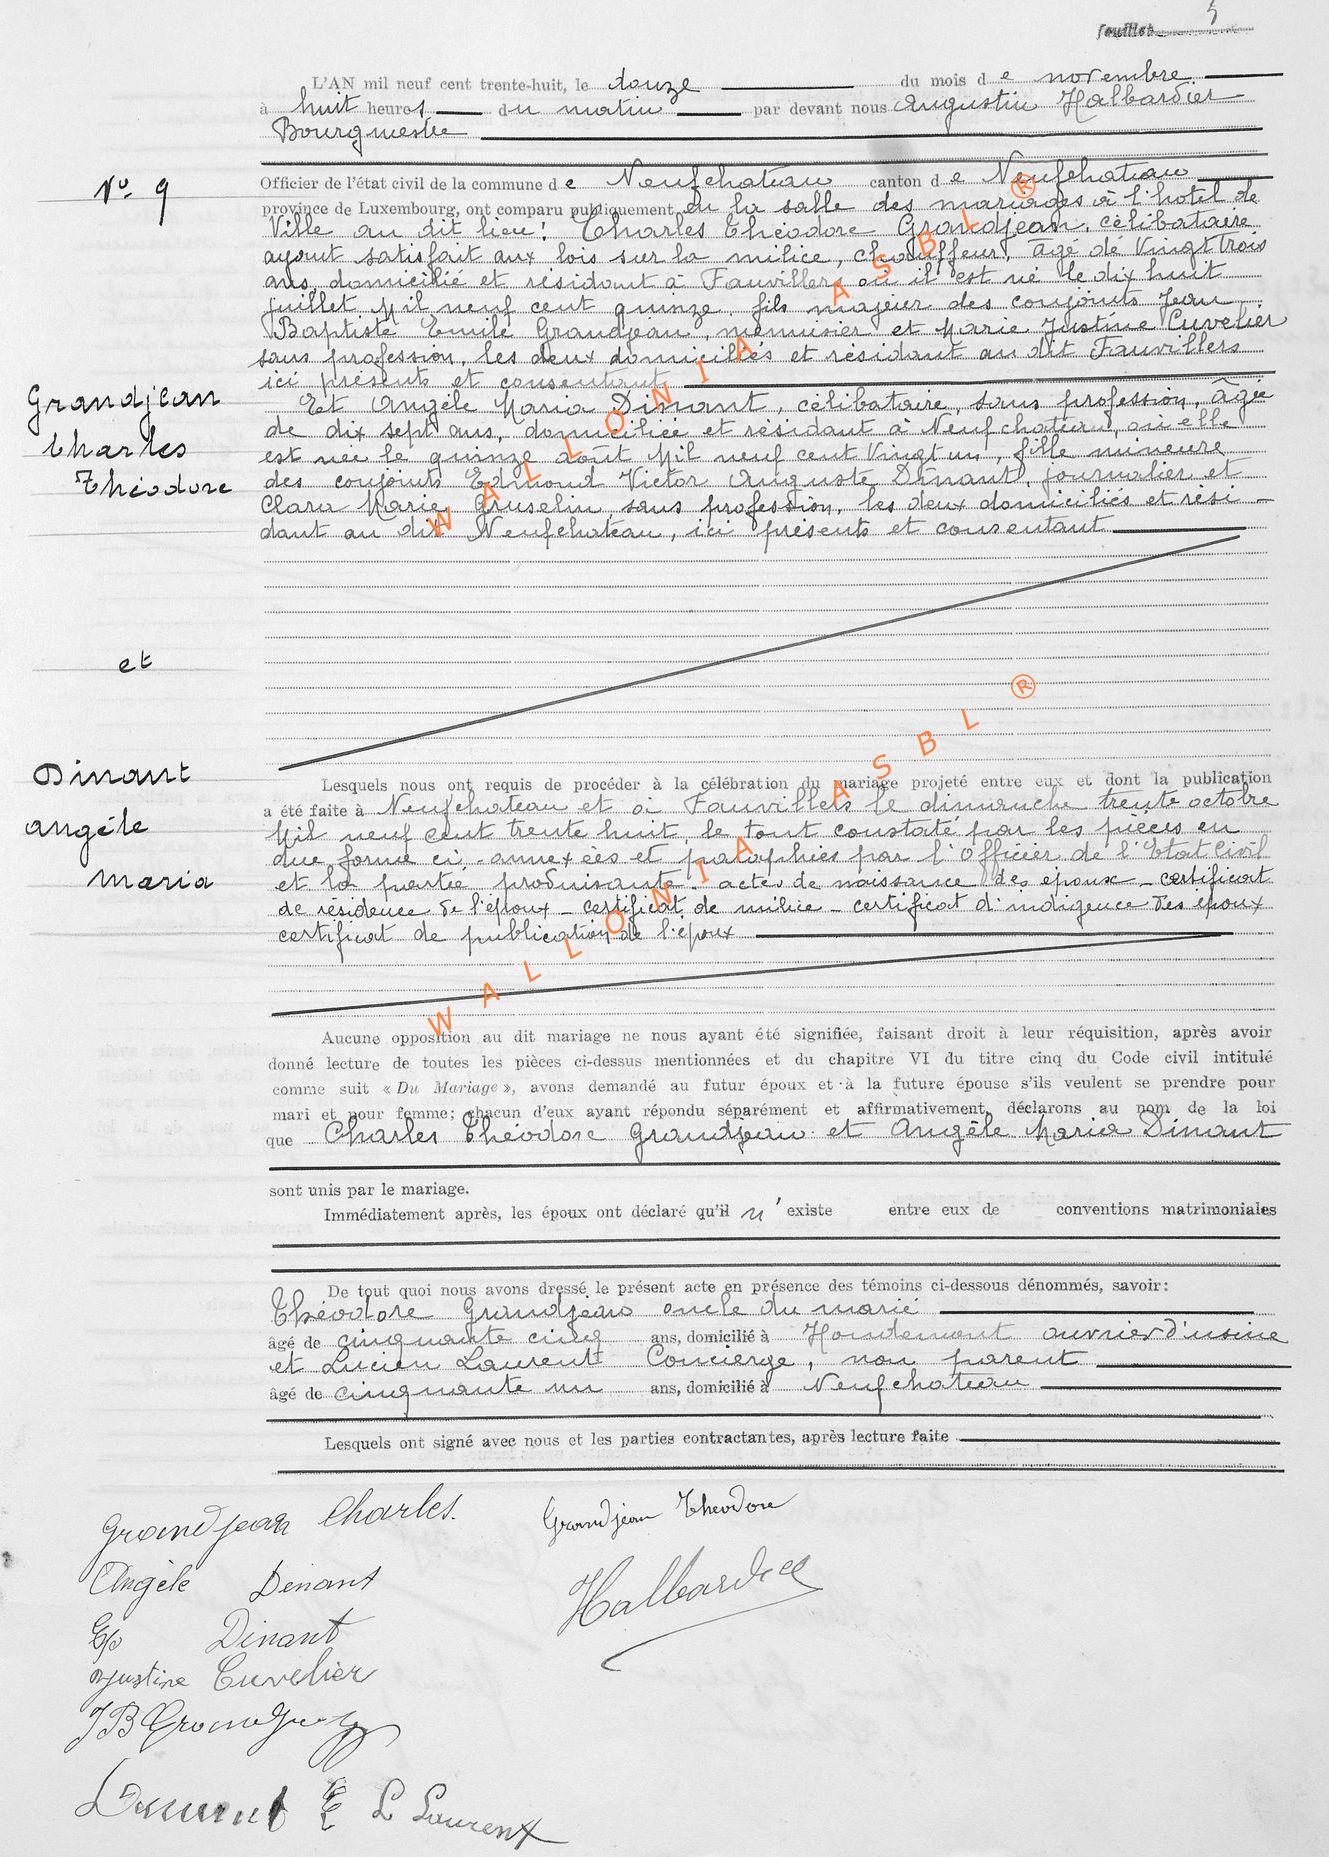 feuillet 5
L'AN mil neuf cent trente-huit, le douze du mois de novembre
à huit heures du matin par devant nous Augustin Halbardier
Bourgmestre
N° 9
Officier de l'état civil de la commune de Neufchateau canton de Neufchateau
province de Luxembourg, ont comparu publiquement en la salle des mariages à l'hotel de
Ville au dit lieu: Charles Théodore Grandjean, célibataire
ayant satisfait aux lois sur la milice, chauffeur, âgé de vingt trois
ans, domicilié et résidant à Fauvillers où il est né le dix huit
juillet Mil neuf cent quinze, fils majeur des conjoints Jean
Baptiste Emile Grandjean, menuisier et Marie Justine Cuvelier
sans profession, les deux domiciliés et résidant au dit Fauvillers
ici présents et consentant
Grandjean
Charles
Théodore
Et Angèle Maria Dinant, célibataire, sans profession, âgée
de dix sept ans, domiciliée et résidant à Neufchateau, où elle
est née le quinze août Mil neuf cent vingt un, fille mineure
des conjoints Edmond Victor Auguste Dinant, journalier et
Clara Marie Gruselin, sans profession, les deux domiciliés et rési-
dant au dit Neufchateau, ici présents et consentant
et
Dinant
Angèle
Maria
Lesquels nous ont requis de procéder à la célébration du mariage projeté entre eux et dont la publication
a été faite à Neufchateau et à Fauvillers le dimanche trente octobre
Mil neuf cent trente huit, le tout constaté par les pièces en
due forme ci-annexées et paraphées par l'Officier de l'Etat Civil
et la partie produisante. actes de naissance des époux - certificat
de résidence de l'époux - certificat de milice - certificat d'indigence des époux
certificat de publication de l'époux
Aucune opposition au dit mariage ne nous ayant été signifiée, faisant droit à leur réquisition, après avoir
donné lecture de toutes les pièces ci-dessus mentionnées et du chapitre VI du titre cinq du Code civil intitulé
comme suit « Du Mariage », avons demandé au futur époux et à la future épouse s'ils veulent se prendre pour
mari et pour femme; chacun d'eux ayant répondu séparément et affirmativement, déclarons au nom de la loi
que Charles Théodore Grandjean et Angèle Maria Dinant
sont unis par le mariage.
Immédiatement après, les époux ont déclaré qu'il n'existe entre eux de conventions matrimoniales
De tout quoi nous avons dressé le présent acte en présence des témoins ci-dessous dénommés, savoir:
Théodore Grandjean oncle du marié
âgé de cinquante cinq ans, domicilié à Houdemont ouvrier d'usine
et Lucien Laurent Concierge, non parent
âgé de cinquante un ans, domicilié à Neufchateau
Lesquels ont signé avec nous et les parties contractantes, après lecture faite
Grandjean Charles. Grandjean Théodore
Angèle Dinant
Halbardier
Ep Dinant
Justine Cuvelier
JB Grandjean
Dinant E L Laurent
WALLONIA ASBL ®
WALLONIA ASBL ®